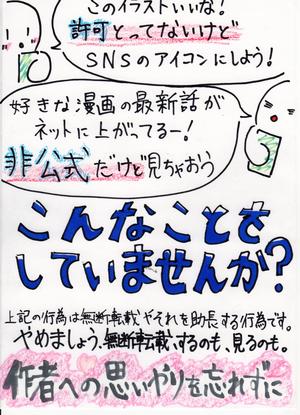 このイラストいいな!
許可とってないけど
SNSのアイコンにしよう!
好きな漫画の最新話が
ネットに上がってるー!
非公式だけど見ちゃおう
こんなことを
していませんか?
上記の行為は無断転載やそれを助長する行為です。
やめましょう、無断転載、するのも、見るのも。
作者への思いやりを忘れずに